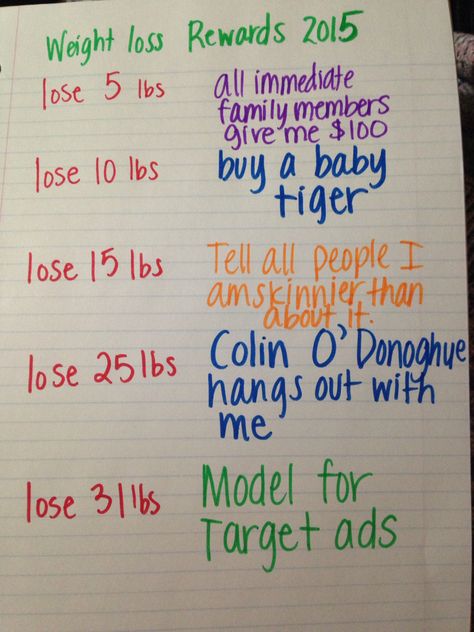 Weight loss Rewards 2015
lose 5 lbs
all immediate
family members
give me $100
lose 10 lbs
buy a baby
tiger
lose 15 lbs
Tell all people I
am skinnier than
about it.
lose 25 lbs
Colin O'Donoghue
hangs out with
me
lose 31 lbs
Model for
Target ads